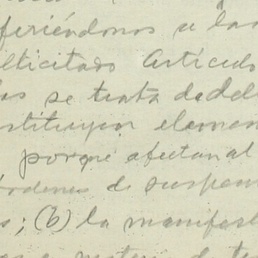 feriéndonos a las
lticitado Artículo
las se trata de del
stituyen elemen
porque afectan al
órdenes de suspen
s; (b) la manifest